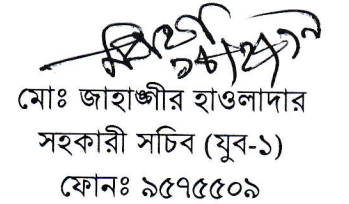 মোঃ জাহাঙ্গীর হাওলাদার
সহকারী সচিব (যুব-১)
ফোনঃ ৯৫৭৫৫০৯